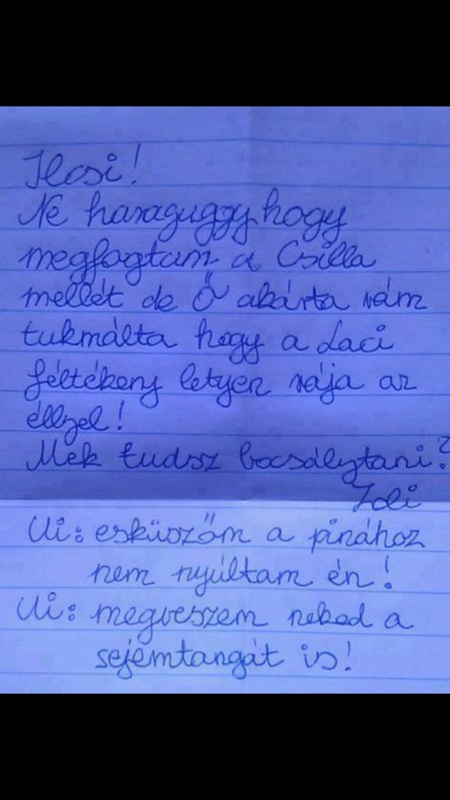 Ilcsi!
Ne haraguggy hogy
megfogtam a Csilla
mellét de Ő akárta rám
tukmálta hogy a Laci
féltékeny letyen rája az
éllzel!
Mek tudsz bocsálytani?
Zoli
Ui: esküszőm a pinához
nem nyúltam én!
Ui: megveszem neked a
sejemtangát is!